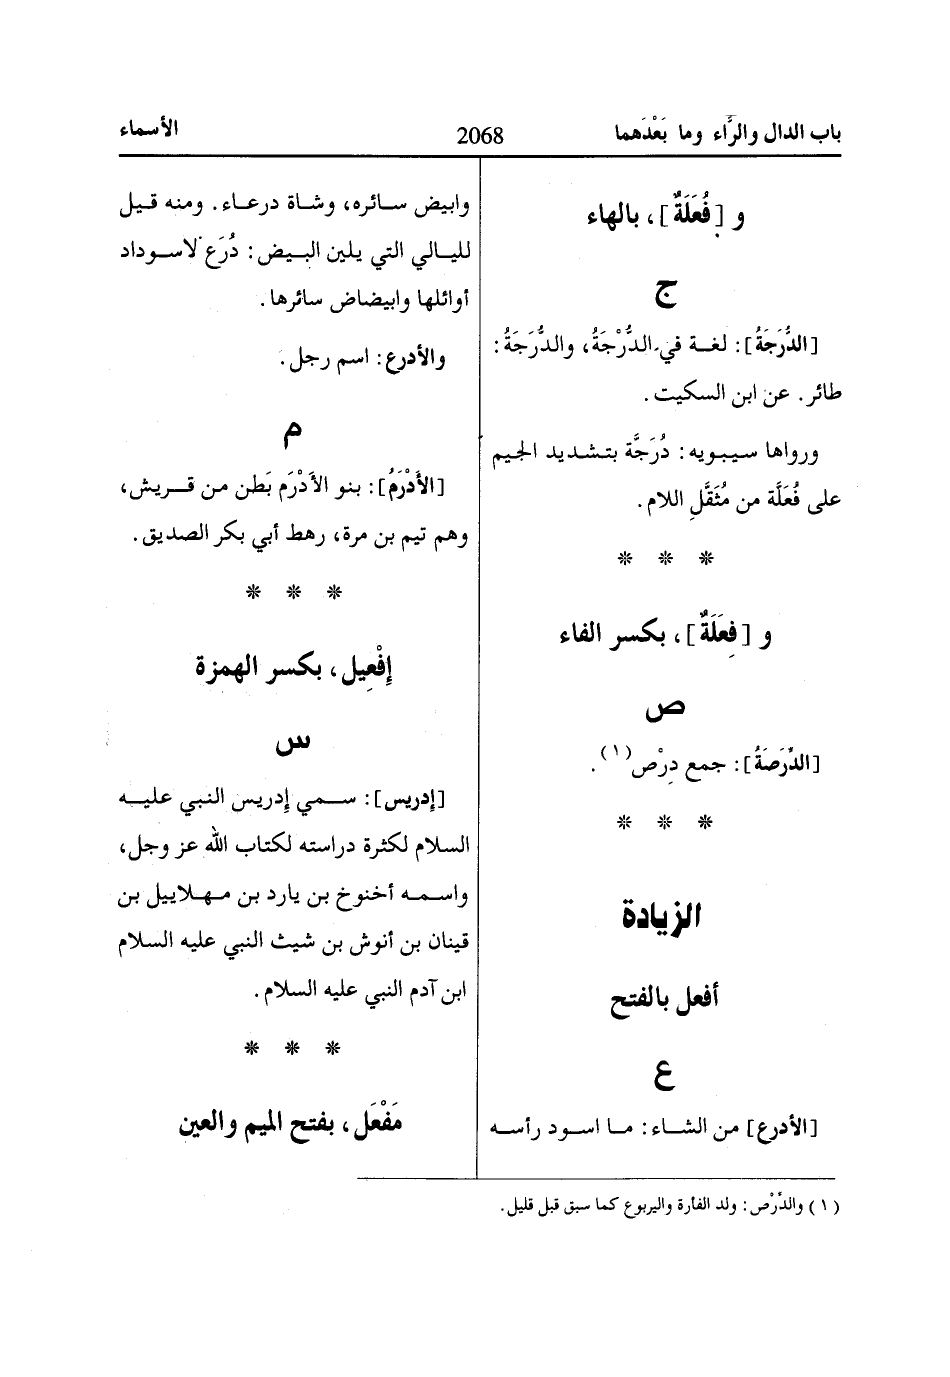 باب الدال والرَّاء وما بَعْدَهما
2068
الأسماء
و [فُعَلَةٌ]، بالهاء
ج
[الدُّرَجَةُ]: لغة في الدُّرْجَةُ، والدُّرَجَةُ:
طائر. عن ابن السكيت.
ورواها سيبويه: دُرَجَّة بتشديد الجيم
على فُعَلَّة من مُثَقَّلِ اللام.
* * *
و [فِعَلَةٌ]، بكسر الفاء
ص
[الدِّرَصَةُ]: جمع دِرْص(١).
* * *
الزيادة
أفعل بالفتح
ع
[الأدرع] من الشاء: ما اسود رأسه
وابيض سائره، وشاة درعاء. ومنه قيل
لليالي التي يلين البيض: دُرَع لاسوداد
أوائلها وابيضاض سائرها.
والأدرع: اسم رجل.
م
[الأَدْرَمُ]: بنو الأَدْرَم بَطن من قريش،
وهم تيم بن مرة، رهط أبي بكر الصديق.
* * *
إفْعِيل، بكسر الهمزة
س
[إدريس]: سمي إدريس النبي عليه
السلام لكثرة دراسته لكتاب الله عز وجل،
واسمه أخنوخ بن يارد بن مهلاييل بن
قينان بن أنوش بن شيث النبي عليه السلام
ابن آدم النبي عليه السلام.
* * *
مَفْعَل، بفتح الميم والعين
(١) والدِّرْص: ولد الفأرة واليربوع كما سبق قبل قليل.